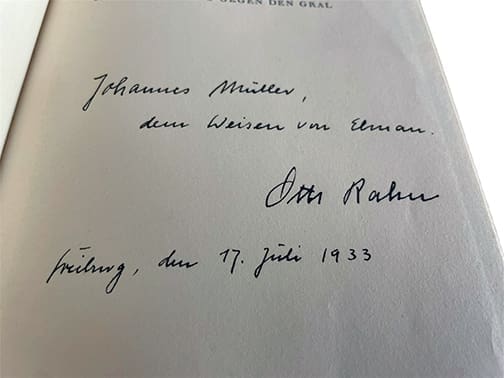 GEGEN DEN GRAL
Johannes Müller,
dem Weisen von Elmau.
Otto Rahn
Freiburg, den 17. Juli 1933